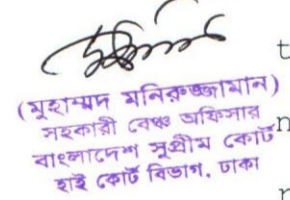 (মুহাম্মদ মনিরুজ্জামান)
সহকারী বেঞ্চ অফিসার
বাংলাদেশ সুপ্রীম কোর্ট
হাই কোর্ট বিভাগ, ঢাকা